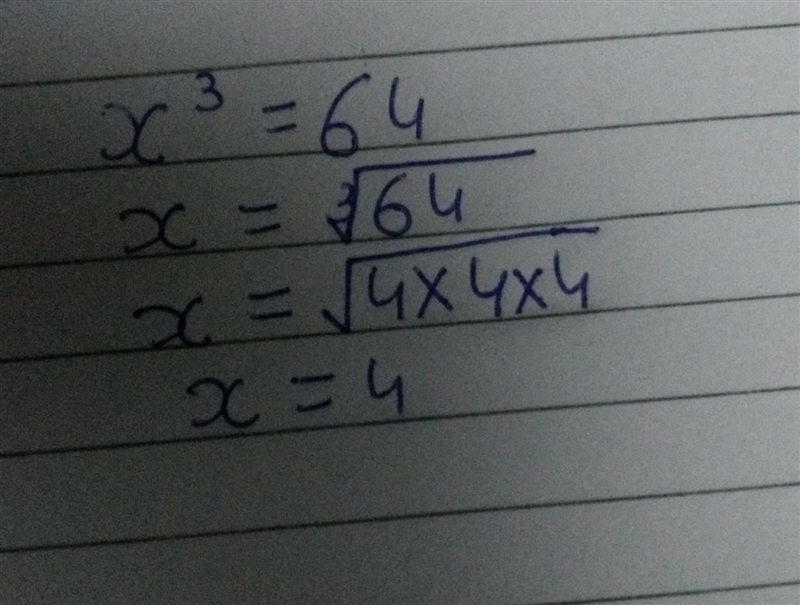 x³ = 64
x = ∛64
x = √4×4×4
x = 4